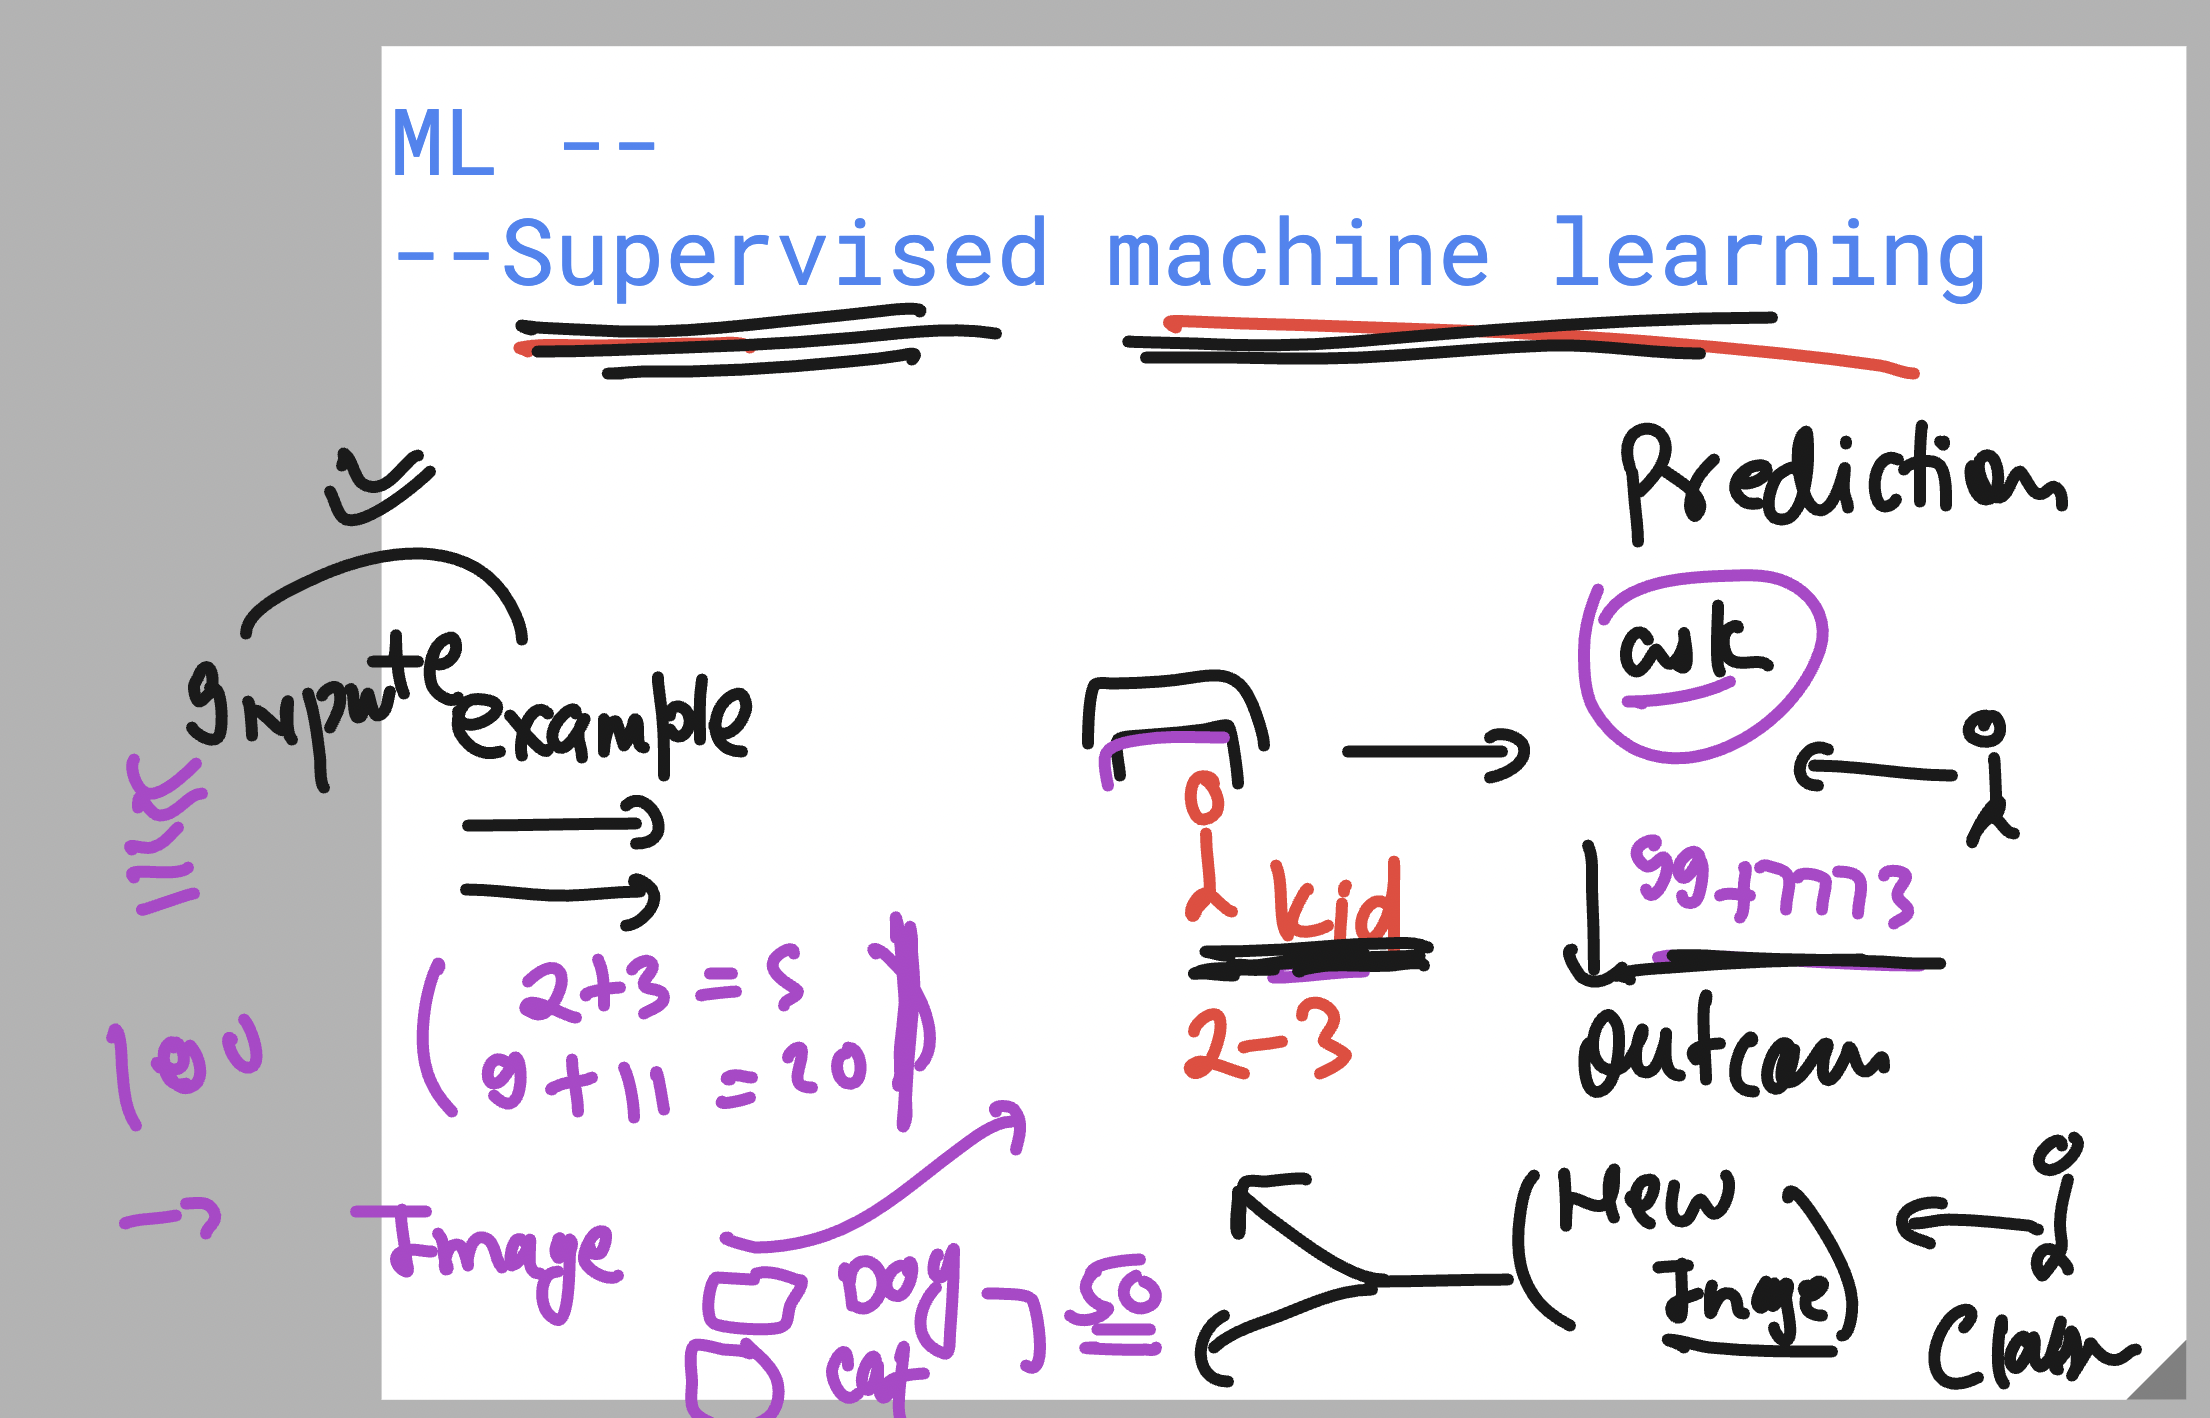 ML --
--Supervised machine learning
Prediction
Inpute example
ask
kid
2-3
99+7773
2+3 = 5
9+11 = 20
Outcom
Image
Dog
Cat
50
(New
Image)